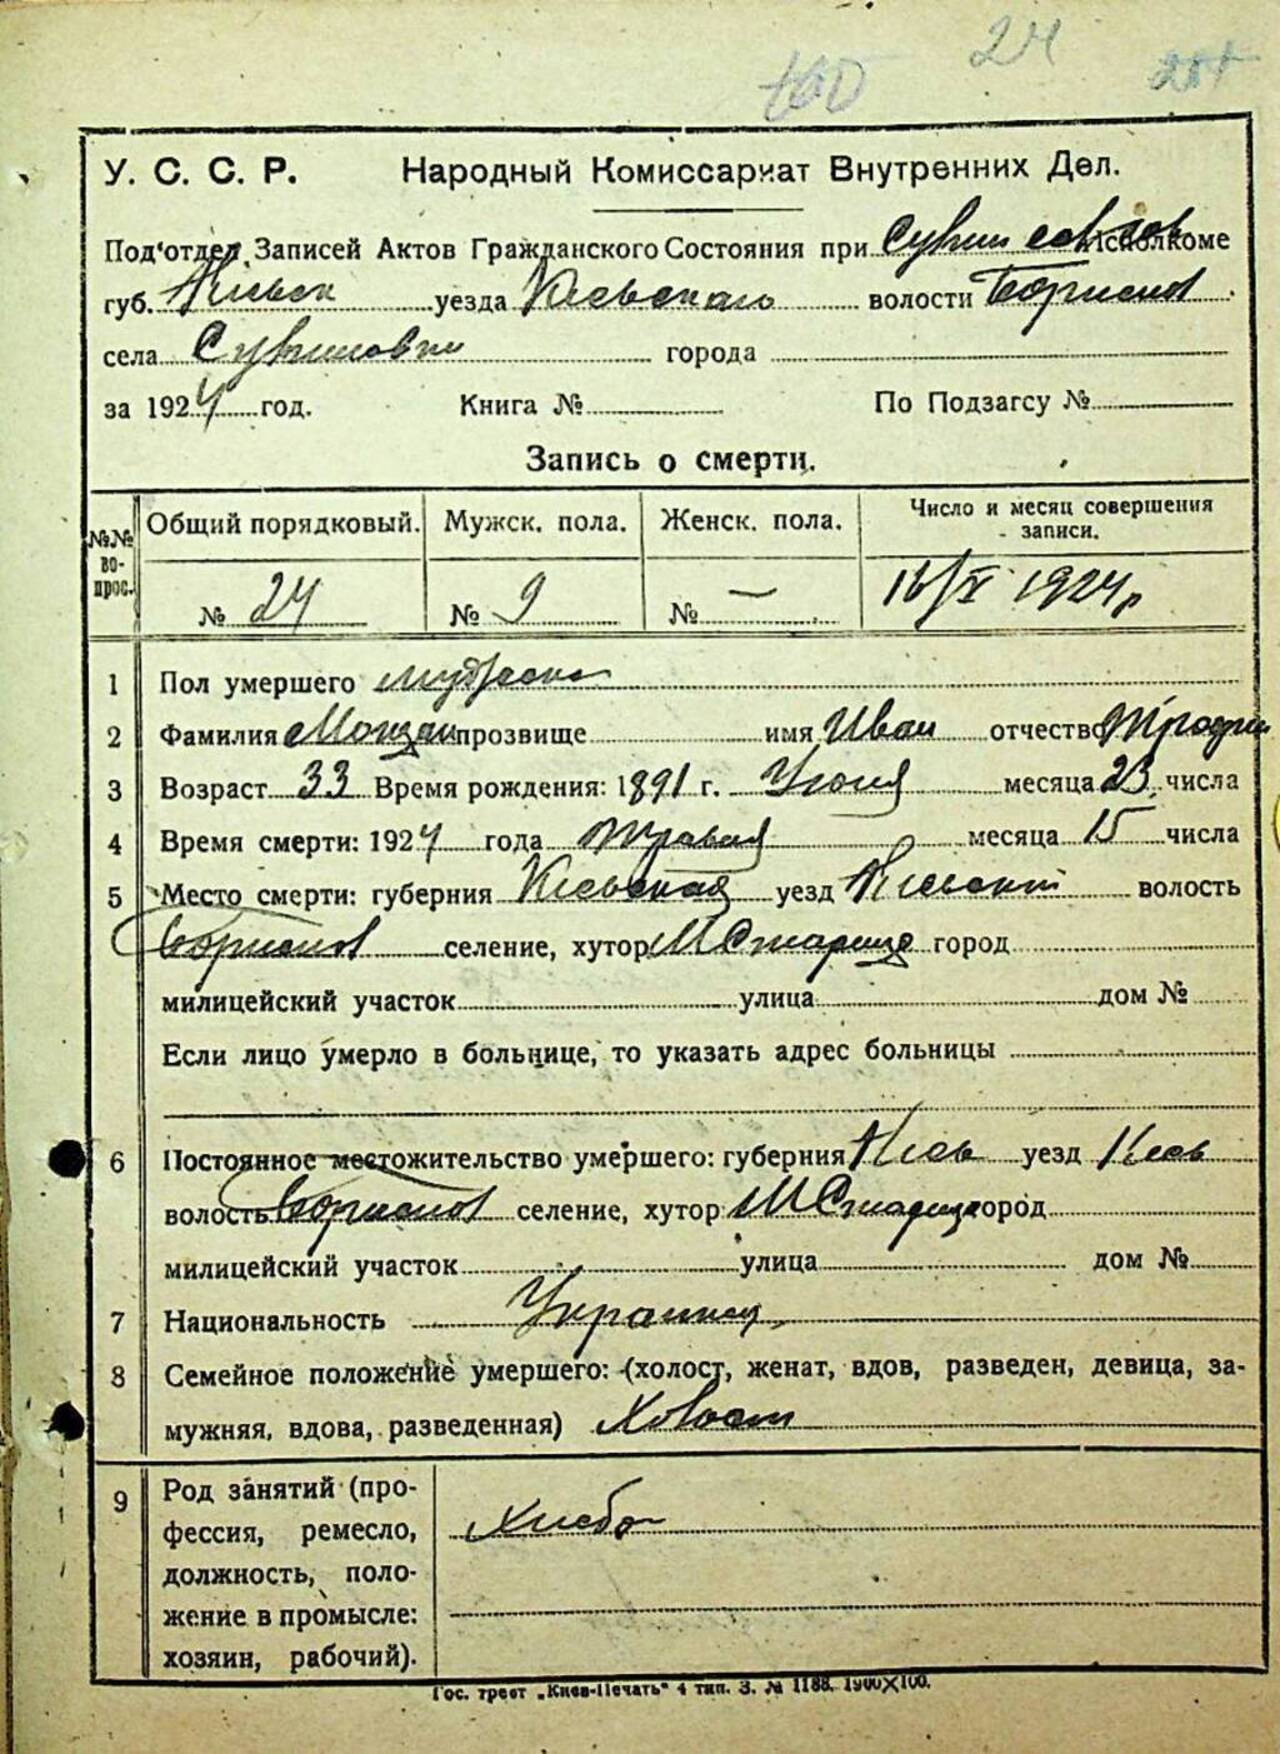 24
У. С. С. Р. Народный Комиссариат Внутренних Дел.
Под'отдел Записей Актов Гражданского Состояния при Исполкоме
губ. Киевск уезда Киевскаго волости Бориспол
села города
за 1924 год. Книга № По Подзагсу №
Запись о смерти.
№№ вопрос. Общий порядковый. Мужск. пола. Женск. пола. Число и месяц совершения записи.
№ 24 № 9 № — 16/V 1924 р
1 Пол умершего мужеска
2 Фамилия прозвище имя Иван отчество
3 Возраст 33 Время рождения: 1891 г. месяца 23 числа
4 Время смерти: 1924 года Травня месяца 15 числа
5 Место смерти: губерния Киевская уезд Киевский волость
Бориспол селение, хутор М Стариця город
милицейский участок улица дом №
Если лицо умерло в больнице, то указать адрес больницы
6 Постоянное местожительство умершего: губерния Киев уезд Киев
волость Бориспол селение, хутор М Стариця город
милицейский участок улица дом №
7 Национальность Украинец
8 Семейное положение умершего: (холост, женат, вдов, разведен, девица, за-
мужняя, вдова, разведенная) Холост
9 Род занятий (про-
фессия, ремесло, Хлебо
должность, поло-
жение в промысле:
хозяин, рабочий).
Гос. трест „Киев-Печать" 4 тип. З. № 1188. 1900×100.